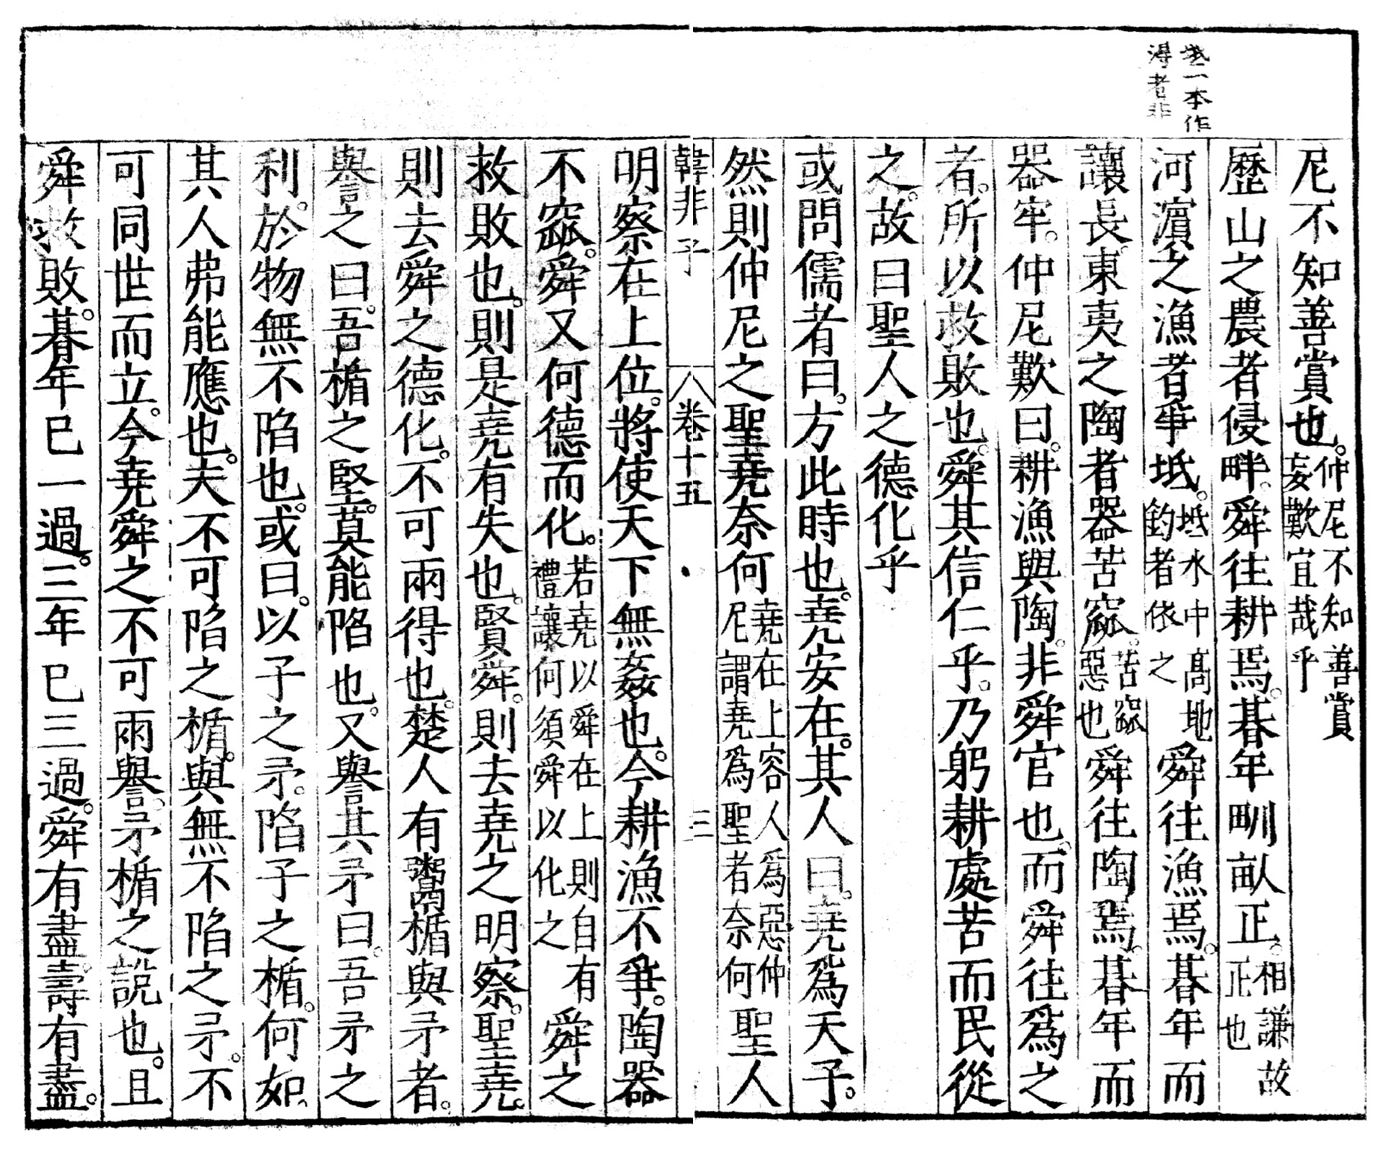 坻一本作
得者非
尼不知善賞也。仲尼不知善賞妄歎宜哉乎
歷山之農者侵畔。舜往耕焉。朞年甽畝正。相謙故正也
河濱之漁者爭坻。坻水中高地釣者依之舜往漁焉。朞年而
讓長。東夷之陶者器苦窳。苦窳惡也舜往陶焉。朞年而
器牢。仲尼歎曰。耕漁與陶。非舜官也。而舜往爲之
者。所以救敗也。舜其信仁乎。乃躬耕處苦而民從
之。故曰聖人之德化乎
或問儒者曰。方此時也。堯安在。其人曰。堯爲天子。
然則仲尼之聖堯奈何堯在上容人爲惡仲尼謂堯爲聖者奈何聖人
韓非子 卷十五 三
明察在上位。將使天下無姦也。今耕漁不爭。陶器
不窳。舜又何德而化。若堯以舜在上則自有禮讓何須舜以化之舜之
救敗也。則是堯有失也。賢舜。則去堯之明察。聖堯。
則去舜之德化。不可兩得也。楚人有鬻楯與矛者。
譽之曰。吾楯之堅。莫能陷也。又譽其矛曰。吾矛之
利。於物無不陷也。或曰。以子之矛。陷子之楯。何如。
其人弗能應也。夫不可陷之楯。與無不陷之矛。不
可同世而立。今堯舜之不可兩譽。矛楯之說也。且
舜救敗。朞年已一過。三年已三過。舜有盡。壽有盡。